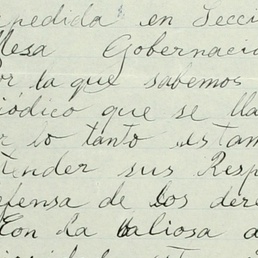 pedida en Secci
Mesa Gobernaci
or la que sabemos
iódico que se lla
r lo tanto estam
tender sus Resp
efensa de los dere
Con la baliosa a